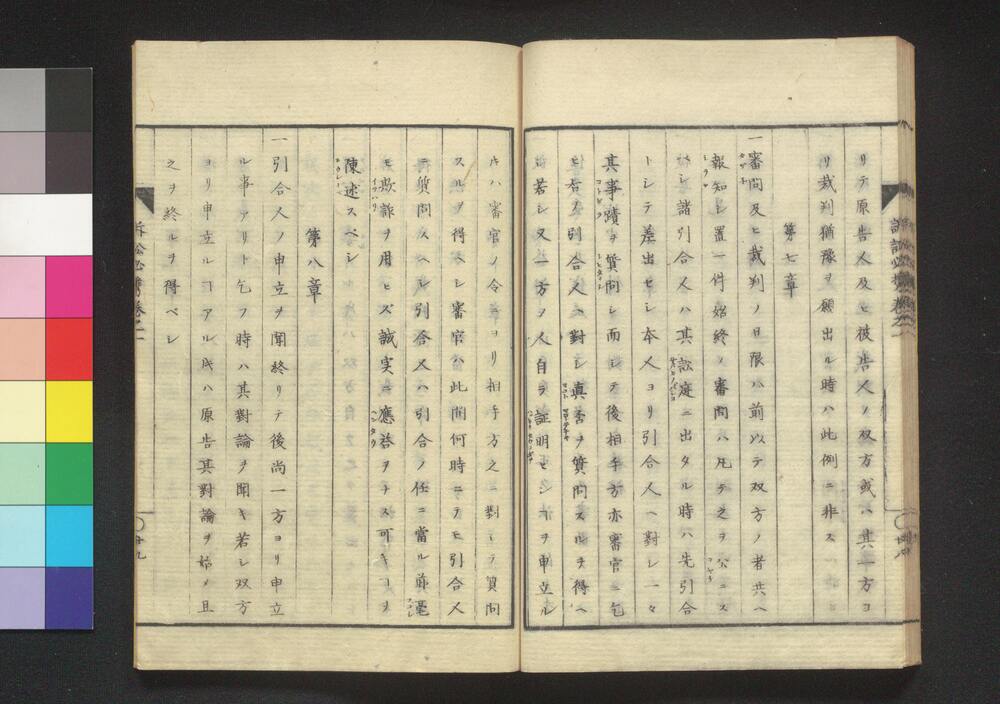 リテ原告人及ヒ被告人ノ双方或ハ其一方ヨ
リ裁判猶豫ヲ願出ル時ハ此例ニ非ス
第七章
一審問及ヒ裁判ノ日限ハ前以テ双方ノ者共ヘ
報知シ置一件始終ノ審問ハ凡テ之ヲ公ニス
ヘシ諸引合人ハ其訟庭ニ出タル時ハ先引合
トシテ差出セシ本人ヨリ引合人ヘ對シ一々
其事蹟ヲ質問シ而シテ後相手方亦審官ニ乞
ヒ右ノ引合人ヘ對シ真否ヲ質問スルヲ得ヘ
若シ又一方ノ人自ラ証明セシヿヲ申立ル
片ハ審官ノ令ニヨリ相手方之ニ對シテ質問
スルヲ得ヘシ審官ハ此間何時ニテモ引合人
ニ質問スヘシ引合人ハ引合ノ任ニ當ル毎毫
モ欺詐ヲ用ヒズ誠実ニ應答ヲナス可キヿヲ
陳述スベシ
第八章
一引合人ノ申立ヲ聞終リテ後尚一方ヨリ申立
ル事アリト乞フ時ハ其對論ヲ聞キ若シ双方
ヨリ申立ルヿアル片ハ原告其對論ヲ始メ且
之ヲ終ルヲ得ベシ
訴訟必携巻之一